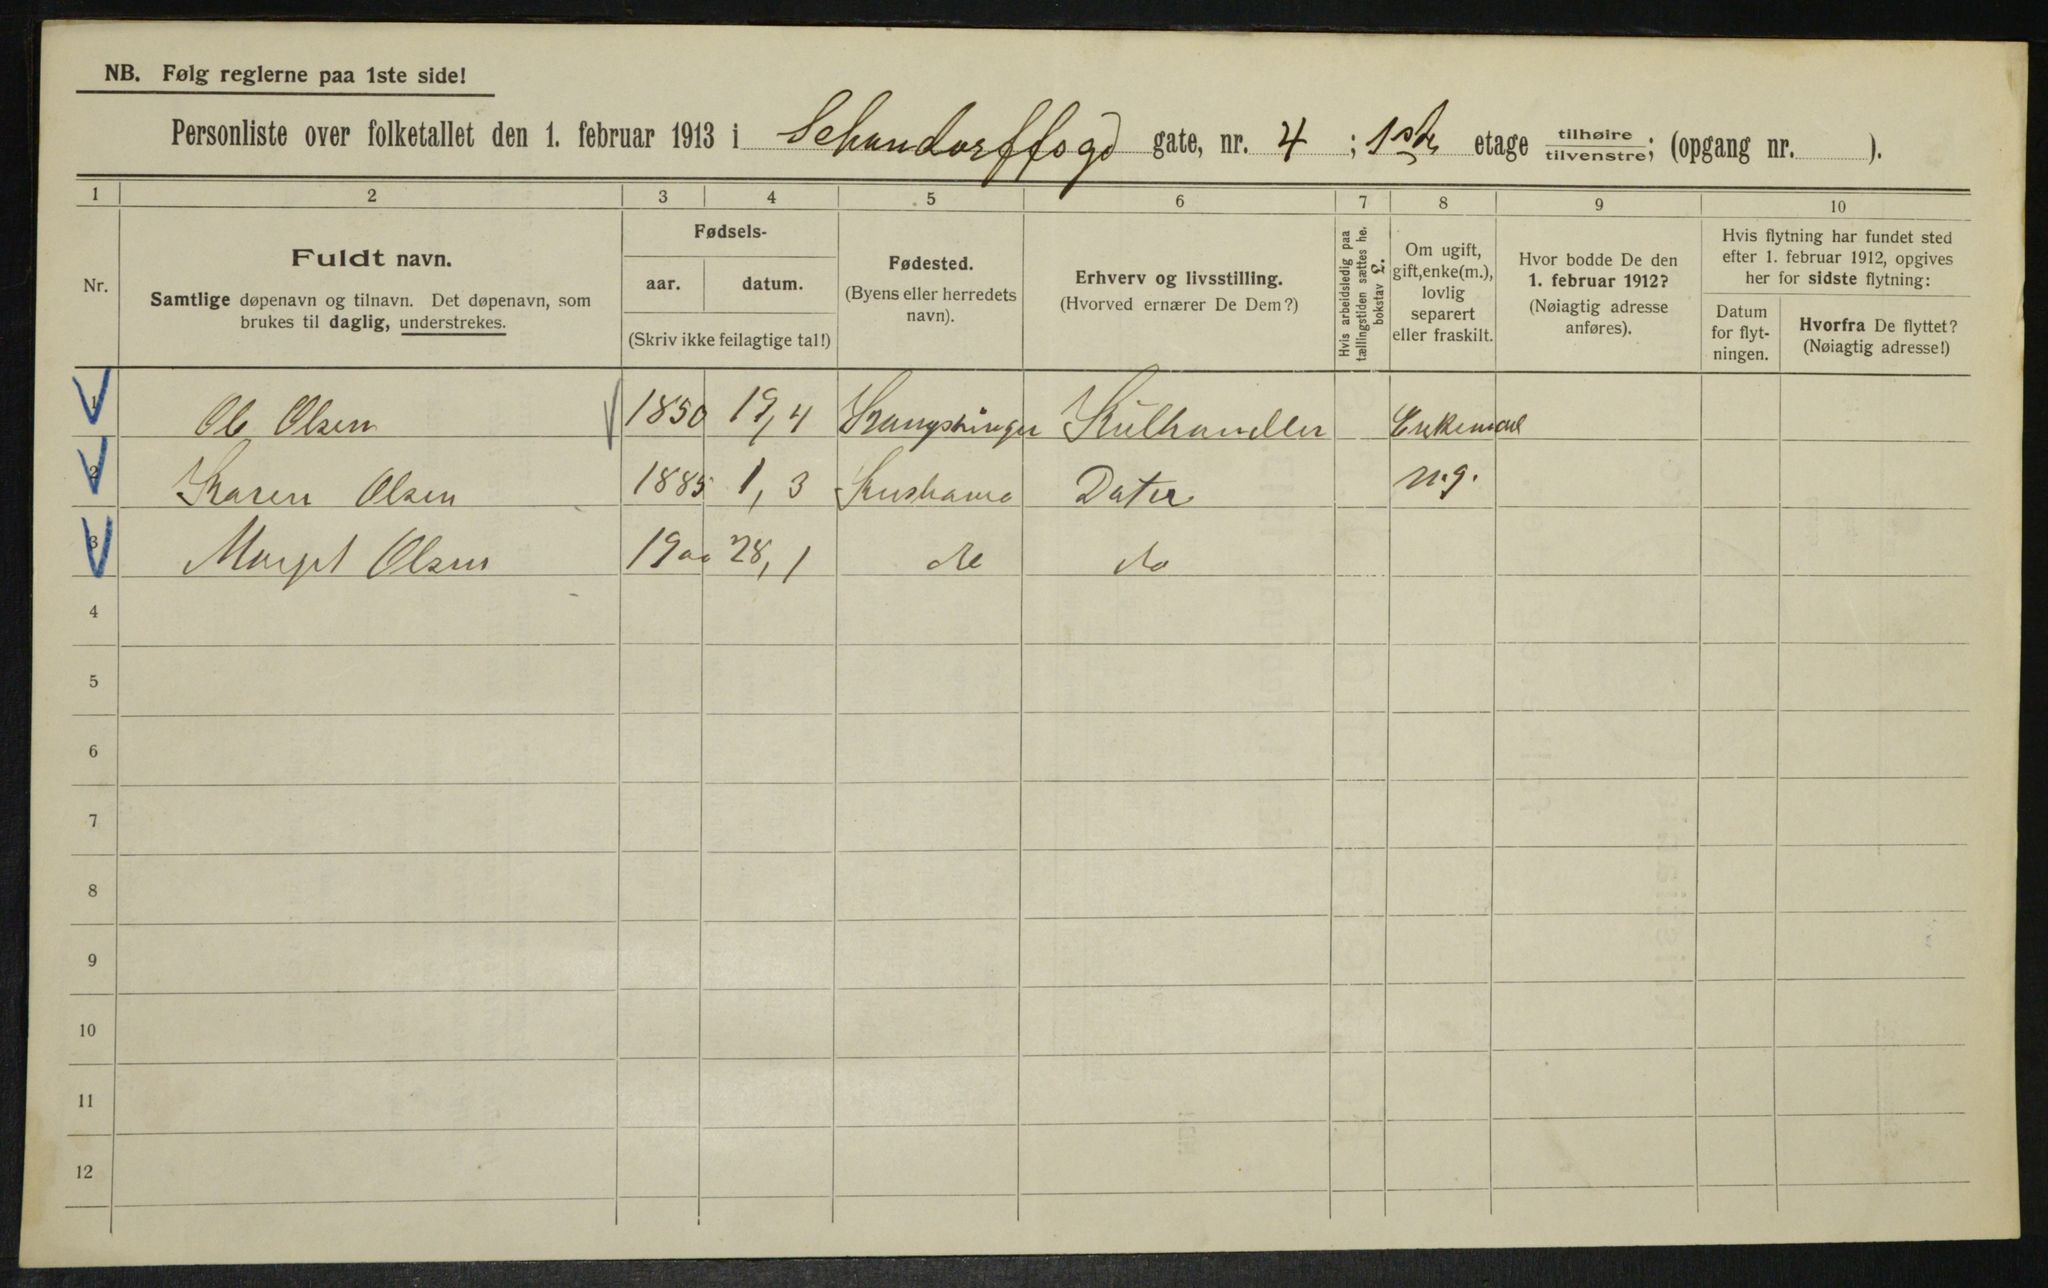 NB. Følg reglerne paa 1ste side!
Personliste over folketallet den 1. februar 1913 i Schandorffsgd gate, nr. 4; 1ste etage tilhøire/tilvenstre; (opgang nr. ).
1 2 3 4 5 6 7 8 9 10
Nr.
Fuldt navn.
Samtlige døpenavn og tilnavn. Det døpenavn, som
brukes til daglig, understrekes.
Fødsels-
aar. datum.
(Skriv ikke feilagtige tal!)
Fødested.
(Byens eller herredets
navn).
Erhverv og livsstilling.
(Hvorved ernærer De Dem?)
Hvis arbeidsledig paa
tællingstiden sættes he.
bokstav L.
Om ugift,
gift, enke(m.),
lovlig
separert
eller fraskilt.
Hvor bodde De den
1. februar 1912?
(Nøiagtig adresse
anføres).
Hvis flytning har fundet sted
efter 1. februar 1912, opgives
her for sidste flytning:
Datum
for flyt-
ningen.
Hvorfra De flyttet?
(Nøiagtig adresse!)
1 Ole Olsen 1850 19,4 Kulhandler Enkemand
2 Karen Olsen 1885 1,3 Dater u.g.
3 Olsen 1900 28,1 do do
4
5
6
7
8
9
10
11
12